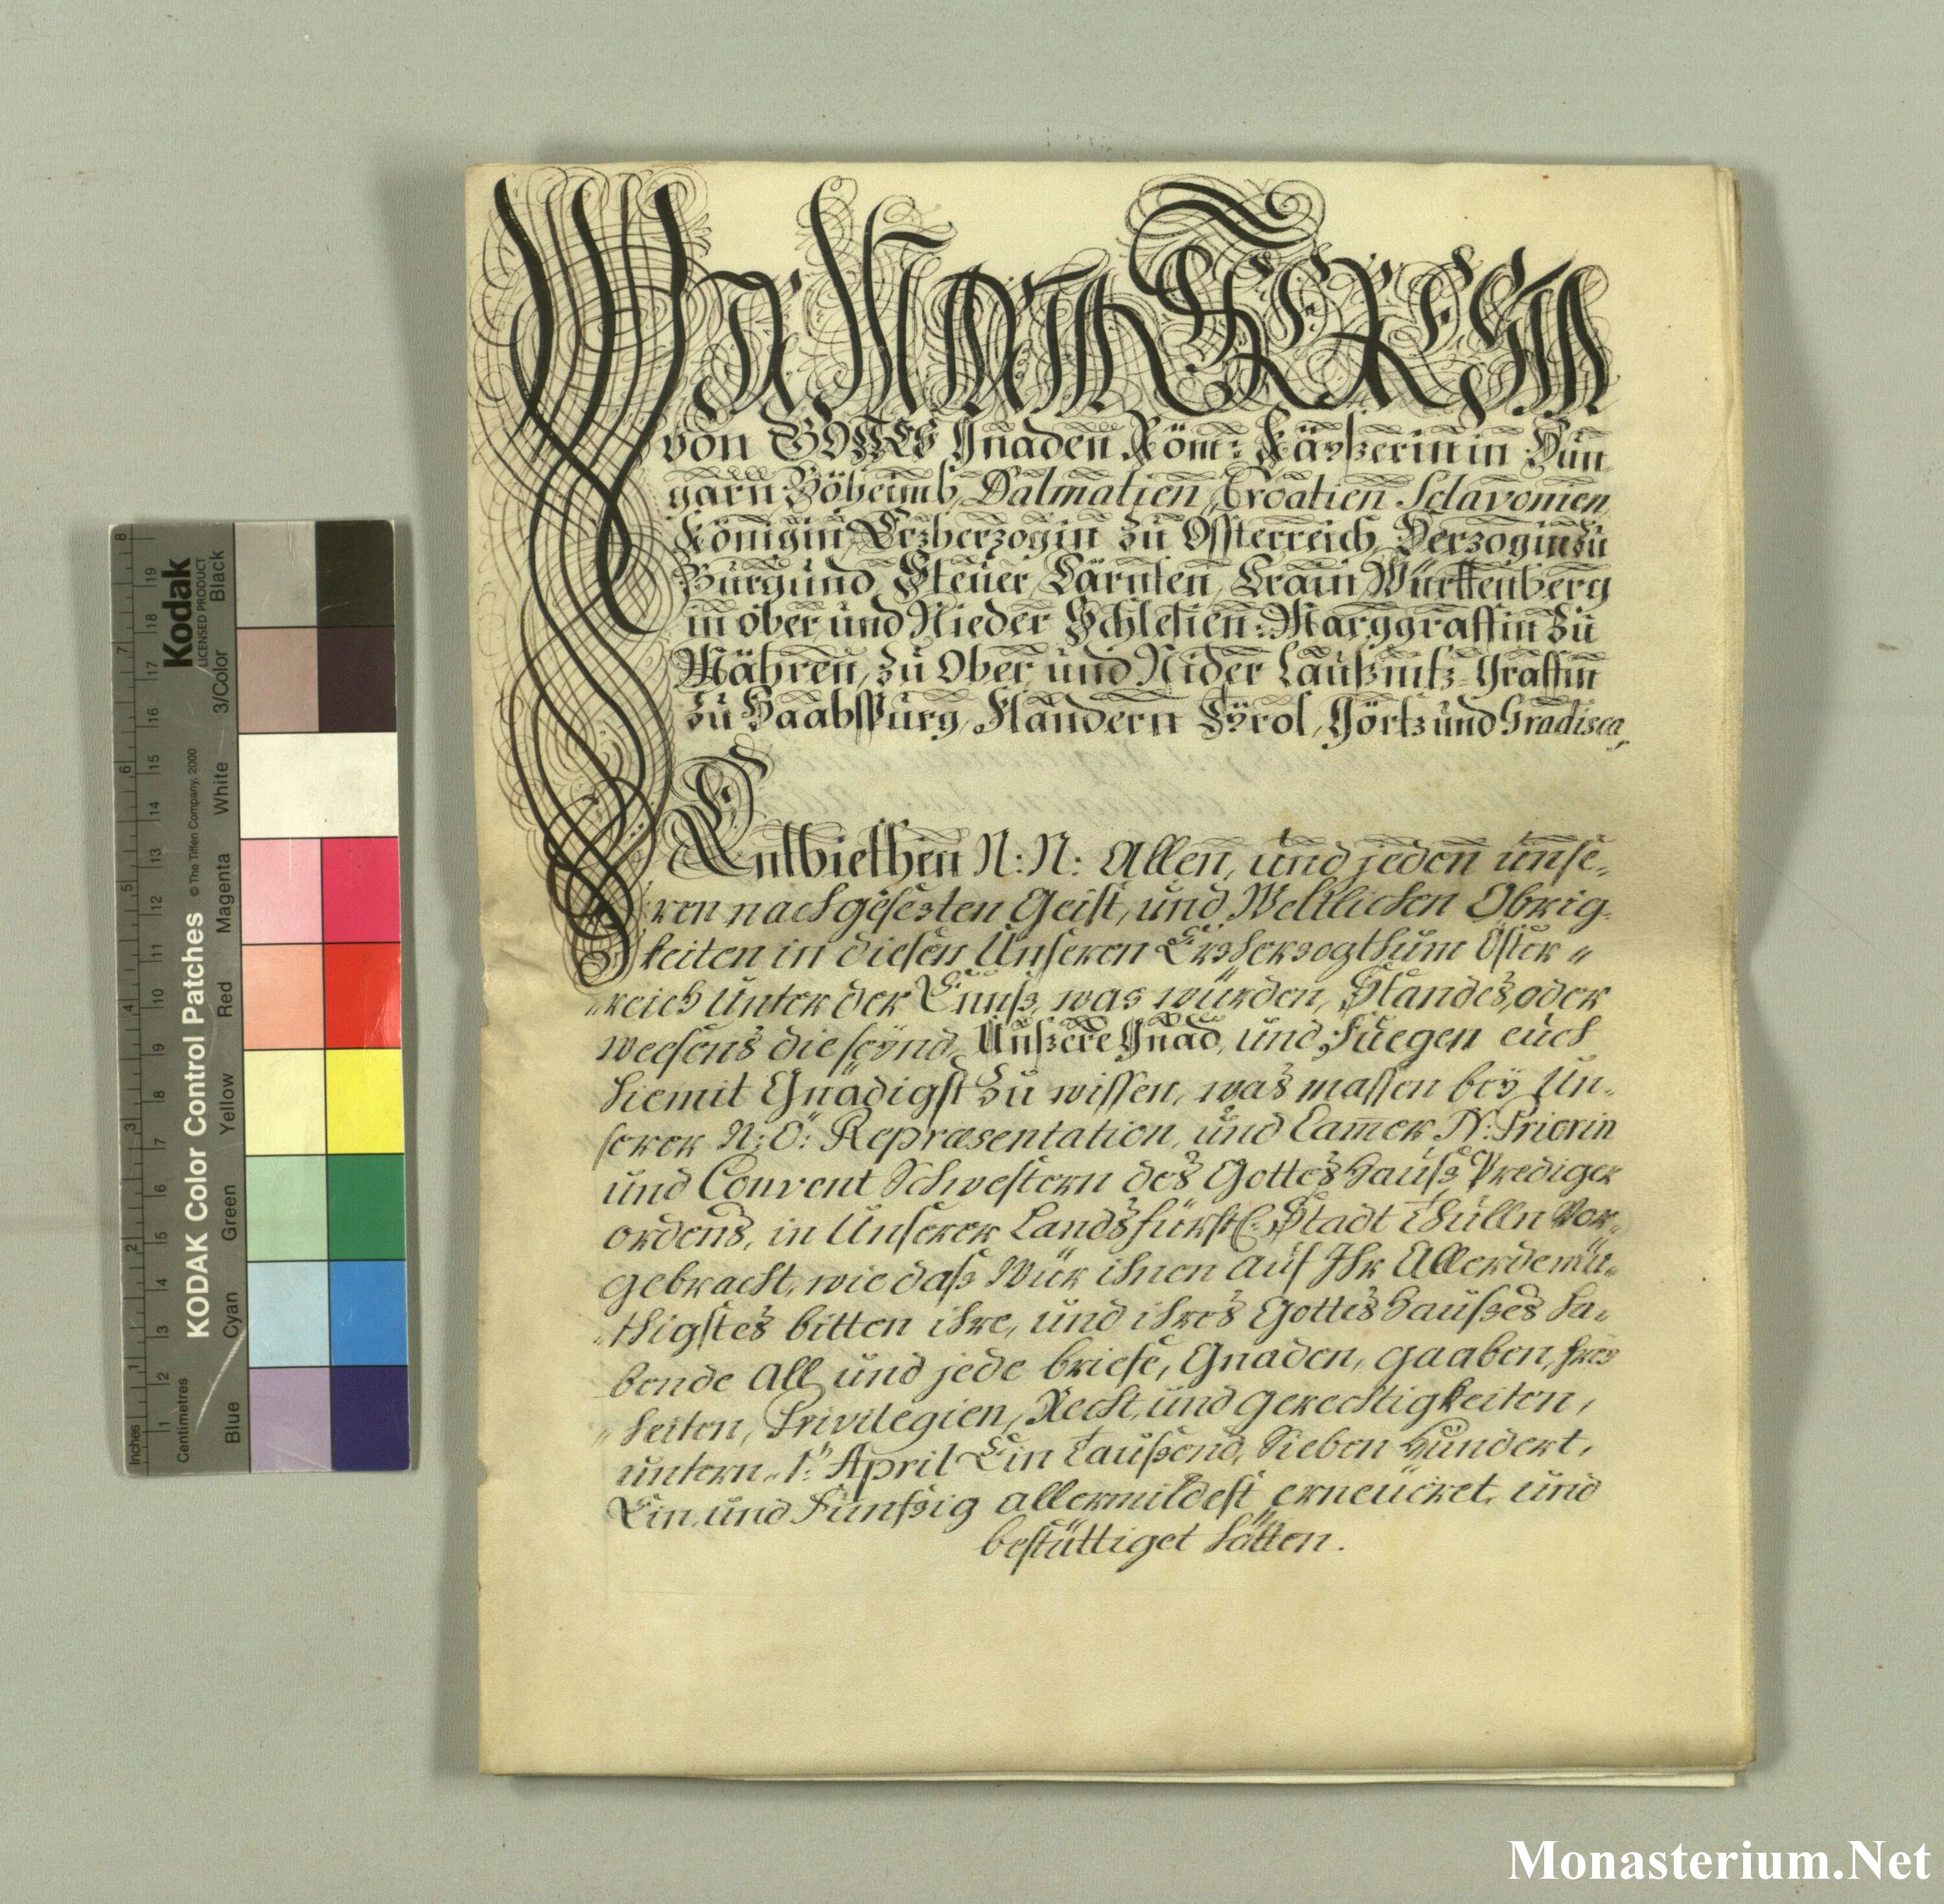 Wir Maria Theresia
von GOTTES Gnaden Röm: Käyßerin in Hun¯
garn Böheimb, Dalmatien, Croatien Sclavonien,
Königin, Erzherzogin zu Össterreich, Herzogin zu
Burgund, Steuer, Kärnten, Crain, Württenberg
in ober und Nieder Schlesien: Marggraffin zu
Mähren, zu Ober und Nider Laußnitz, Graffin
zu Haabspurg, Flandern Tÿrol, Görtz und Gradisca,
Entbiethen N: N: Allen, und jeden unse„
ren nachgesezten Geist, und Weltlichen Obrig„
keiten in diesen Unseren Erzherzogthum Öster„
„reich Unter der Ennß, was würden, Standes, oder
weesens die seÿnd, Unßere Gnad, und Fuegen euch
hiemit Gnädigst zu wissen, was massen beÿ Un„
serer N: Ö: Repræsentation, und Cam̄er N: Priorin
und Convent Schwestern des Gotteshauß Prediger
ordens, in Unserer Landsfürstl: Stadt Thulln Vor„
gebracht, wie daß Wür ihnen auf Ihr Allerdemü„
„thigstes bitten ihre, und ihres Gotteshaußes ha„
bende All und jede briefe, Gnaden, gaaben, freÿ
„heiten, Privilegien, Recht, und gerechtigkeiten,
untern „1:" April Ein Taußend, Sieben Hundert,
Ein und Funfzig allermildest erneueret, und
bestättiget hätten.
Kodak
LICENSED PRODUCT
KODAK Color Control Patches
© The Tiffen Company, 2000
Inches
Centimetres
1 2 3 4 5 6 7 8
1 2 3 4 5 6 7 8 9 10 11 12 13 14 15 16 17 18 19
Blue
Cyan
Green
Yellow
Red
Magenta
White
3/Color
Black
Monasterium.Net